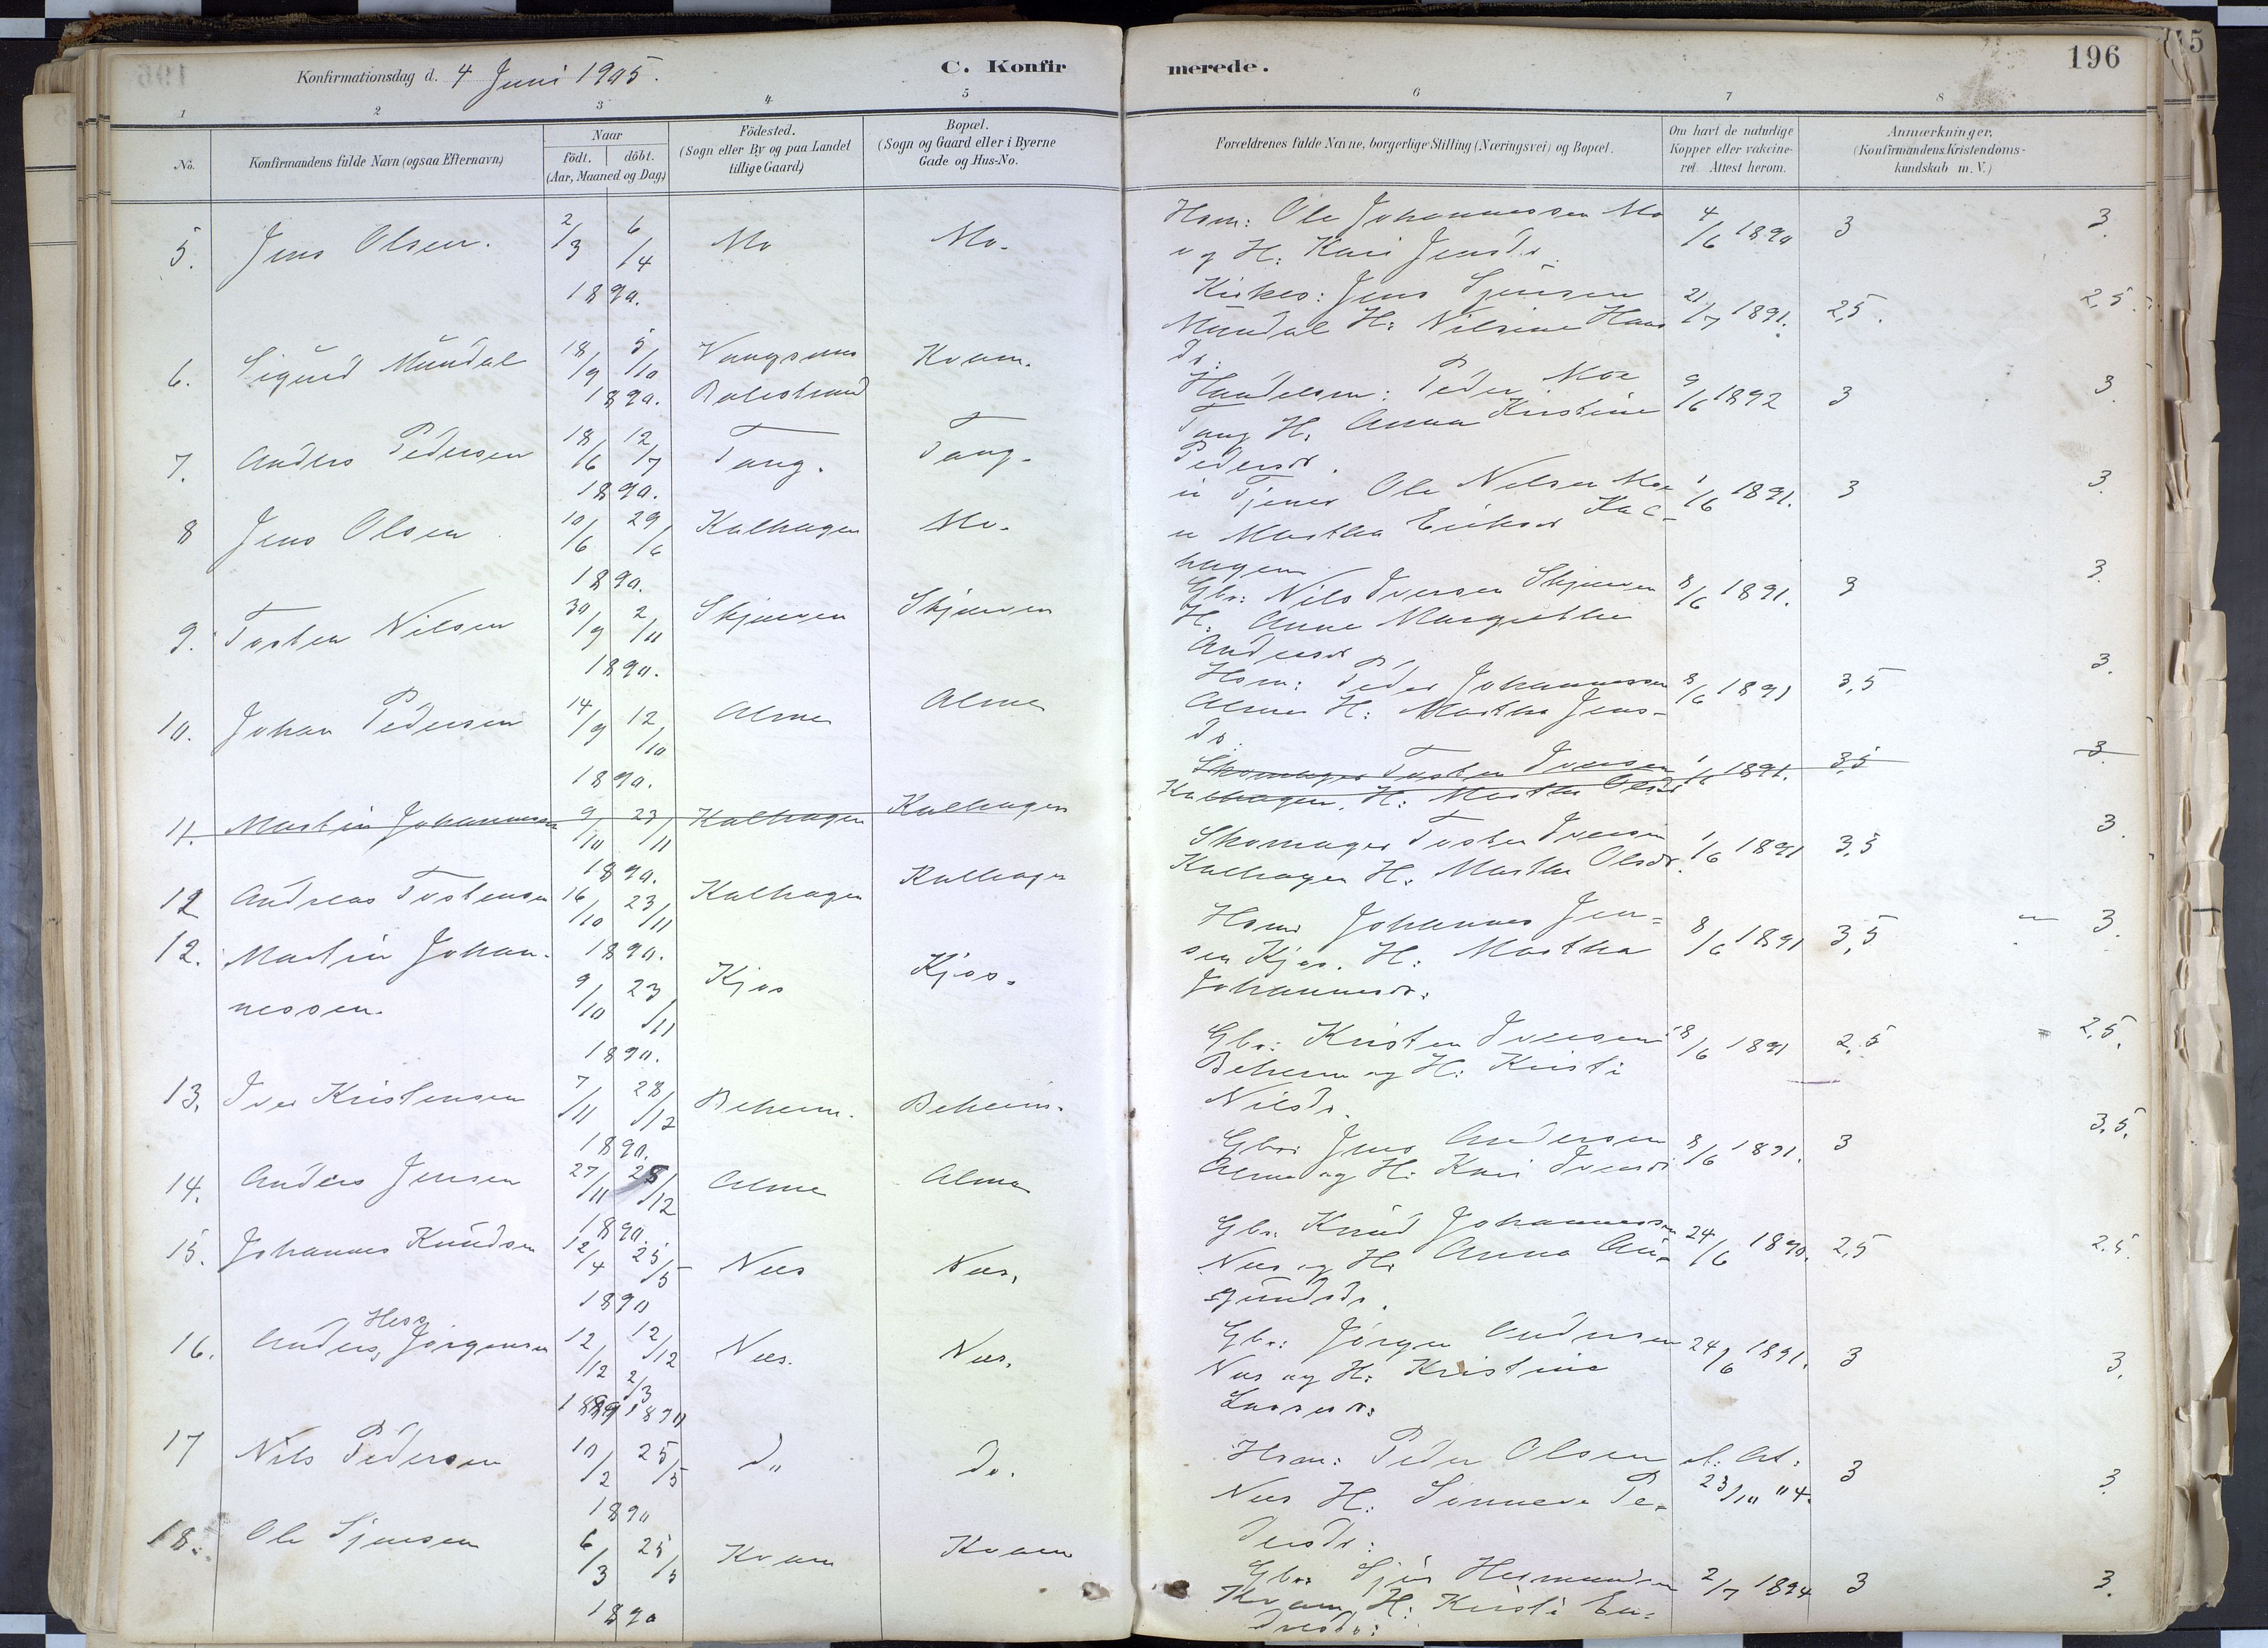 Konfirmationsdag d. 4 Juni 1905.
C. Konfirmerede.
196
1 2 3 4 5 6 7 8
No.
Konfirmandens fulde Navn (ogsaa Efternavn)
Naar
födt. döbt.
(Aar, Maaned og Dag)
Födested.
(Sogn eller By og paa Landet
tillige Gaard)
Bopæl.
(Sogn og Gaard eller i Byerne
Gade og Hus-No.
Forældrenes fulde Navne, borgerlige Stilling (Næringsvei) og Bopæl.
Om havt de naturlige
Kopper eller vakcine-
ret. Attest herom.
Anmærkninger,
(Konfirmandens Kristendoms-
kundskab m. V.)
5. Jens Olsen. 2/3 6/4 1890. Mo Mo.
Hsm: Ole Johannessen Mo 4/6 1890 3 3.
og H. Kari Jensdr.
6. Sigurd Mundal 18/9 5/10 1890. Vangsnes Balestrand Kvam.
Kirkes: Jens Sjursen 21/7 1891. 2,5. 2,5.
Mundal H: Nilsine Hans
dr.
7. Anders Pedersen 18/6 12/7 1890. Tang. Tang.
Handelsm: Peder Moe 9/6 1892 3 3.
Tang H. Anna Kristine
Pedersdr.
8 Jens Olsen 10/6 29/6 1890. Kalhagen Mo.
Tjener Ole Nilsen Moe 1/6 1891. 3 3.
Martha Eriksdr Kal-
hagen
9. Tosten Nilsen 30/9 2/11 1890. Skjerven Skjerven
Gbr: Nils Iversen Skjerven 8/6 1891. 3 3.
H. Anne Margrethe
Andersdr
10. Johan Pedersen 14/9 12/10 1890. Alme Alme
Hsm: Peder Johannessen 8/6 1891 3,5 3.
Alme H: Martha Jens-
dr.
11. Martin Johannessen 9/10 23/11 1890. Kalhagen Kalhagen
Skomager Tosten Iversen 1/6 1891. 3,5 3.
Kalhagen. H: Martha Olsdr
12 Andreas Tostensen 16/10 23/11 1890. Kalhagen Kalhagen
Skomager Tosten Iversen 1/6 1891 3,5 3.
Kalhagen H: Martha Olsdr.
12. Martin Johan- 9/10 23/11 1890. Kjos Kjos.
nessen.
Hsm Johannes Jen- 8/6 1891 3,5 3.
sen Kjos. H: Martha
Johannesdr.
13. Iver Kristensen 7/11 28/12 1890. Beheim. Beheim.
Gbr: Kristen Iversen 8/6 1891 2,5 2,5.
Beheim og H: Kristi
Nilsdr.
14. Anders Jensen 27/11 28/12 1890. Alme Alme
Gbr: Jens Andersen 8/6 1891. 3 3,5.
Alme og H: Kari Iversdr
15. Johannes Knudsen 12/4 25/5 1890 Nes Nes.
Gbr. Knud Johannessen 24/6 1890. 2,5 2,5.
Nes og H: Anna An-
gundsdr.
16. Anders Hess Jørgensen 12/12 12/12 2/3 1889 1890 Nes. Nes.
Gbr: Jørgen Andersen 24/6 1891. 3 3.
Nes og H: Kristine
Lassesdr:
17 Nils Pedersen 10/2 25/5 1890 do do.
Hsm: Peder Olsen 23/10 04. 3 3.
Nes H: Sønneva Pe-
dersdr:
18. Ole Sjursen 6/3 25/5 1890 Kvam Kvam
Gbr: Sjur Hermundsen 2/7 1894 3 3.
Kvam H: Kristi En-
dresdr: